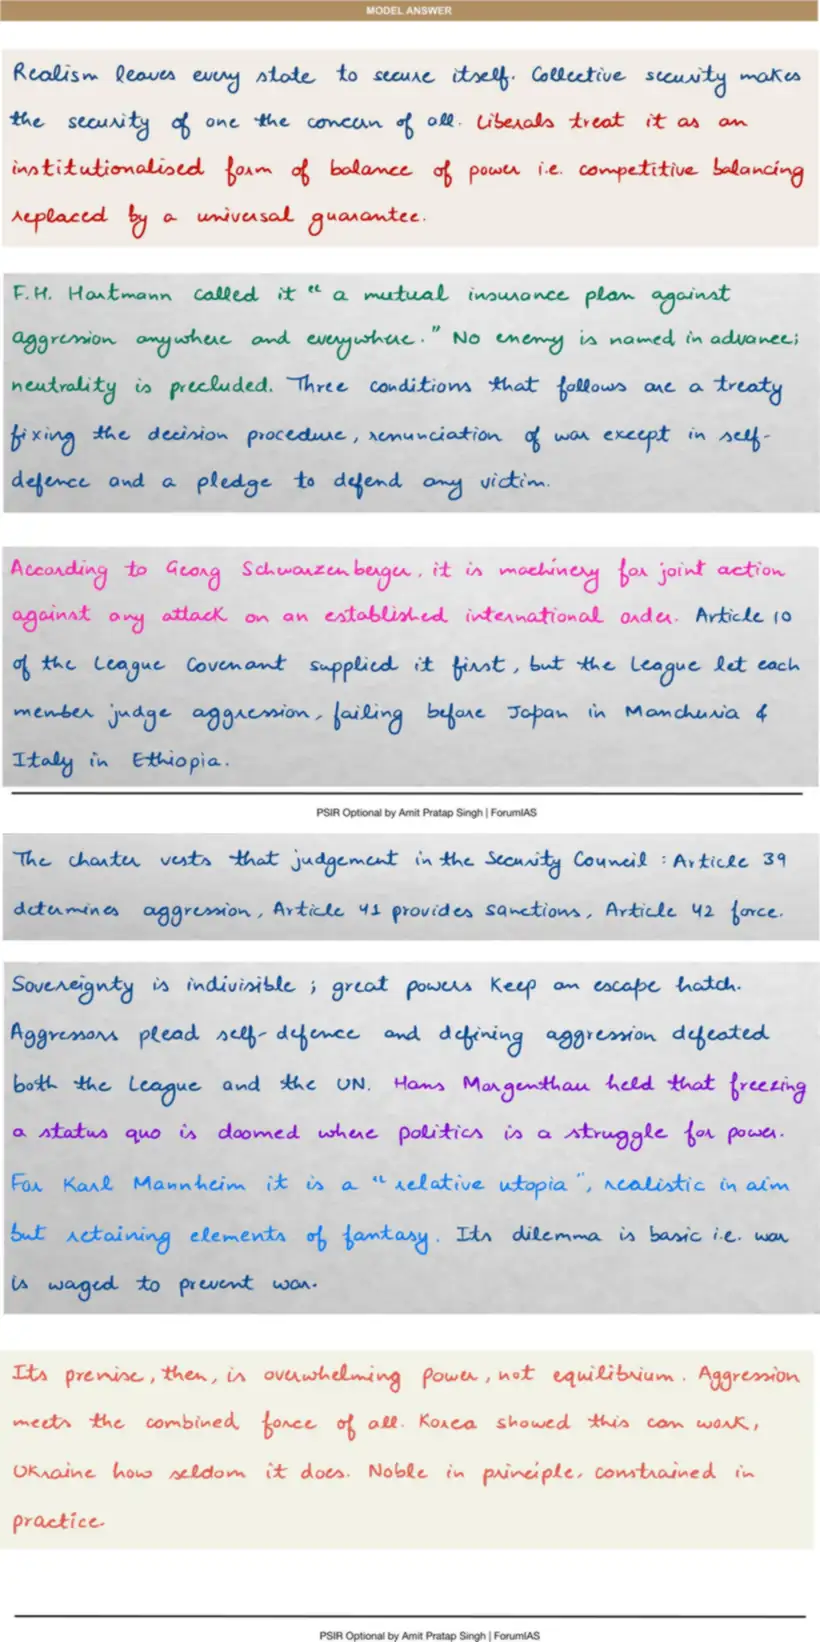 MODEL ANSWER
Realism leaves every state to secure itself. Collective security makes
the security of one the concern of all. Liberals treat it as an
institutionalised form of balance of power i.e. competitive balancing
replaced by a universal guarantee.
F.H. Hartmann called it "a mutual insurance plan against
aggression anywhere and everywhere." No enemy is named in advance;
neutrality is precluded. Three conditions that follows are a treaty
fixing the decision procedure, renunciation of war except in self-
defence and a pledge to defend any victim.
According to Georg Schwarzenberger, it is machinery for joint action
against any attack on an established international order. Article 10
of the League Covenant supplied it first, but the League let each
member judge aggression, failing before Japan in Manchuria &
Italy in Ethiopia.
PSIR Optional by Amit Pratap Singh | ForumIAS
The charter vests that judgement in the Security Council : Article 39
determines aggression, Article 41 provides sanctions, Article 42 force.
Sovereignty is indivisible ; great powers keep an escape hatch.
Aggressors plead self-defence and defining aggression defeated
both the League and the UN. Hans Morgenthau held that freezing
a status quo is doomed where politics is a struggle for power.
For Karl Mannheim it is a "relative utopia", realistic in aim
but retaining elements of fantasy. Its dilemma is basic i.e. war
is waged to prevent war.
Its premise, then, is overwhelming power, not equilibrium. Aggression
meets the combined force of all. Korea showed this can work,
Ukraine how seldom it does. Noble in principle, constrained in
practice.
PSIR Optional by Amit Pratap Singh | ForumIAS